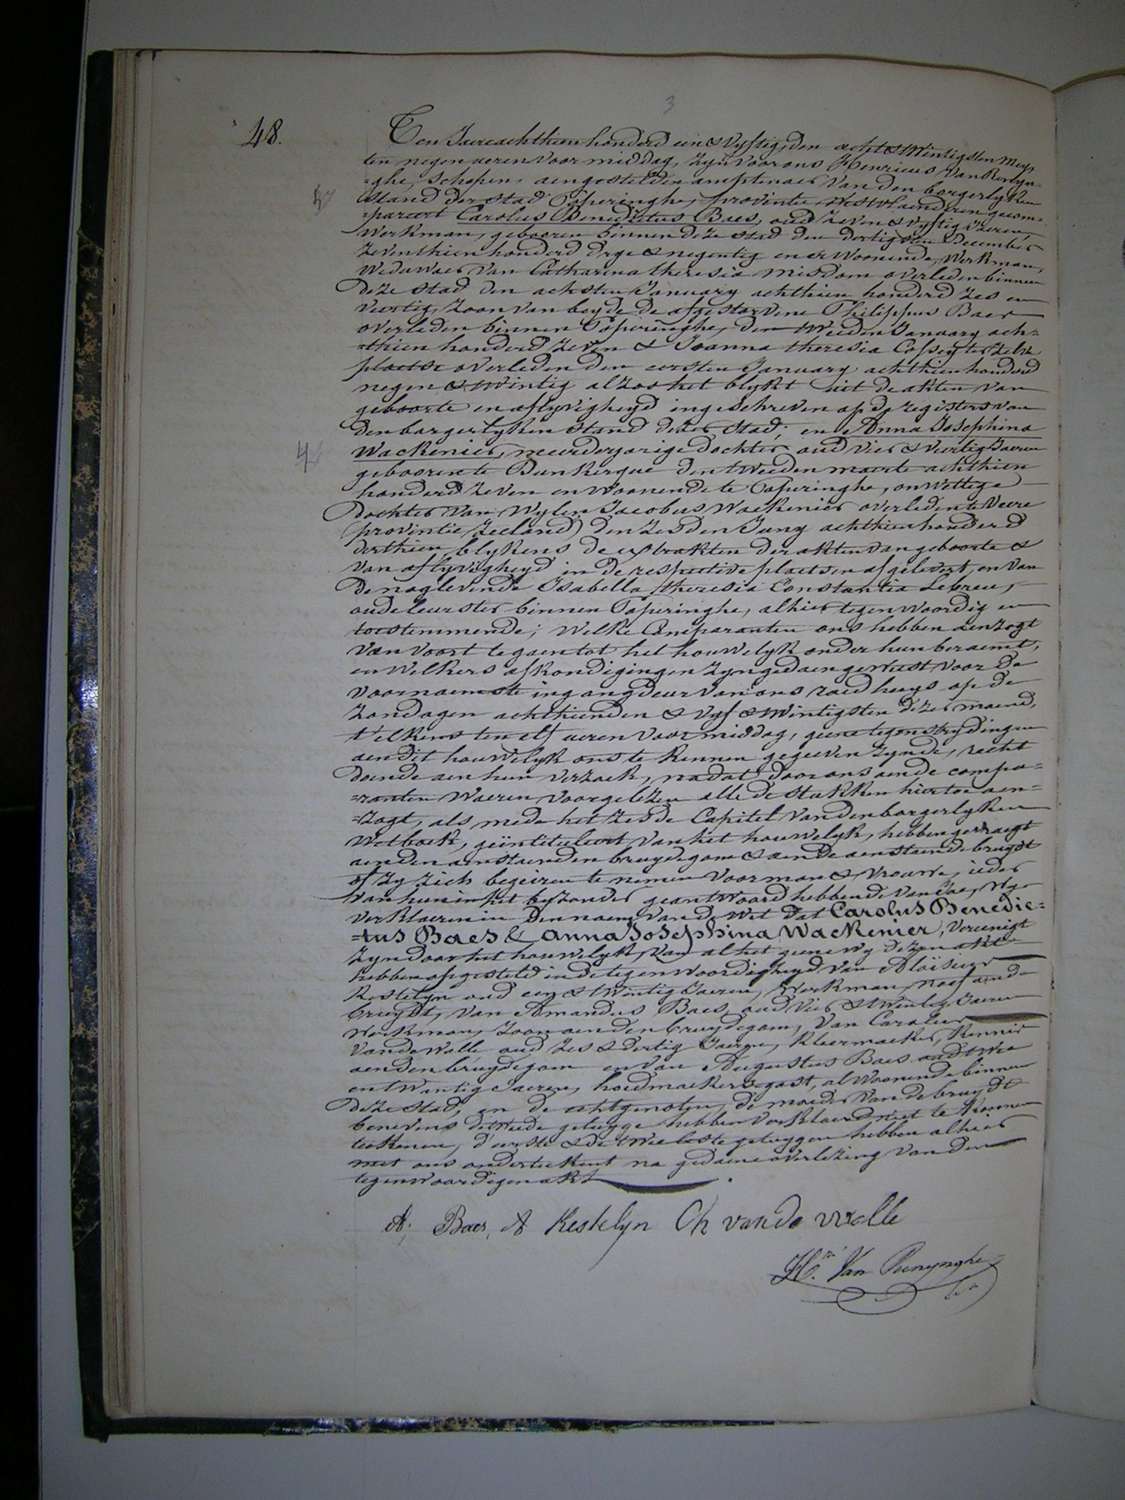 3
48.
Ten Jaere achthien honderd een & vyftig, den acht & twintigsten mey
ten negen ueren voormiddag, zyn voor ons Henricus Van Renyn-
ghe, schepen, aengestelden amptenaer van den borgerlyken
stand der stad Poperinghe, provintie Westvlaenderen gecom-
pareert Carolus Benedictus Baes, oud zeven & vyftig jaeren,
Werkman, gebooren binnen deze stad den dertigsten December
zeventhien honderd drye & negentig en er woonende, Werkman,
Weduwaer van Catharina theresia Misdom overleden binnen
deze stad den achsten January achthien honderd zes en
veertig, zoon van beyde de afgestorvene Philippus Baes
overleden binnen Poperinghe, den tweeden January ach-
thien honderd zeven & Joanna theresia Cossey ter zelve
plaetse overleden den eersten January achthien honderd
negen & twintig alzoo het blykt uit de akten van
geboorte en aflyvigheyd ingeschreven op de registers van
den borgerlyken stand dezer stad; en Anna Josephina
Wackenier, meerderjarige dochter oud vier & veertig Jaeren
geboren te Dunkerque den tweeden maerte achthien
honderd zeven en woonende te Poperinghe, onwettige
dochter van wylen Jacobus Wackenier overleden te Veere
(provintie Zeeland) den zesden Juny achthien honderd
derthien, blykens de extrakten der akten van geboorte &
van aflyvigheyd in de respective plaetsen afgelevert, en van
de naglevende Isabella theresia Constantia Lebreu,
oudekleurster binnen Poperinghe, alhier tegenwoordig en
toestemmende; welke Comparanten ons hebben aenzogt
van voort te gaen tot het houwelyk onder hun beraemt,
en welkers afkondigingen zyn gedaen geweest voor de
voornaemste ingangdeur van ons raedhuys op de
zondagen achthienden & vyf & twintigsten dezer maend,
t'elkens ten elf ueren voormiddag, geene tegenstrydingen
aen dit houwelyk ons te kennen gegeeven zynde, recht
doende aen hun verzoek, nadat door ons aen de compa-
=ranten waeren voorgelezen alle de stukken hiertoe aen-
=zogt, als mede het zesde Capitel van den borgerlyken
Wetboek, geïntituleert van het houwelyk, hebben gevraegt
aen den aenstaenden bruydegom & aen de aenstaende bruydt
of zy zich begeiren te nemen voor man & vrouwe, ieder
van hun in het byzonder geantwoord hebbende van Jae, Wy
verklaeren in den naem van de wet dat Carolus Benedic-
=tus Baes & Anna Josephina Wackenier, vereenigt
zyn door het houwelyk, van al het geene wy dezen akt
hebben opgesteld in de tegenwoordigheyd van Aloïsius
Kestelyn oud een & twintig Jaeren, Werkman, neef aen de
bruydt, van Amandus Baes, oud vier & twintig Jaeren
Werkman, zoon aen den bruydegom, van Carolus
Vandewalle oud zes & dertig Jaeren, kleermaeker, kennis
aen den bruydegom en van Augustus Baes oud twee
en twintig Jaeren, hoedmaekersgast, al woonende binnen
deze stad, en de echtgenoten, de moeder van de bruydt
benevens de tweede getuyge hebben verklaerd niet te kunnen
teekenen, d'eerste & de twee leste getuygen hebben alhier
met ons onderteekent na gedaene overlezing van den
tegenwoordigen akt
A. Baes, A Kestelyn Ch vande walle
Hri. Van Renynghe